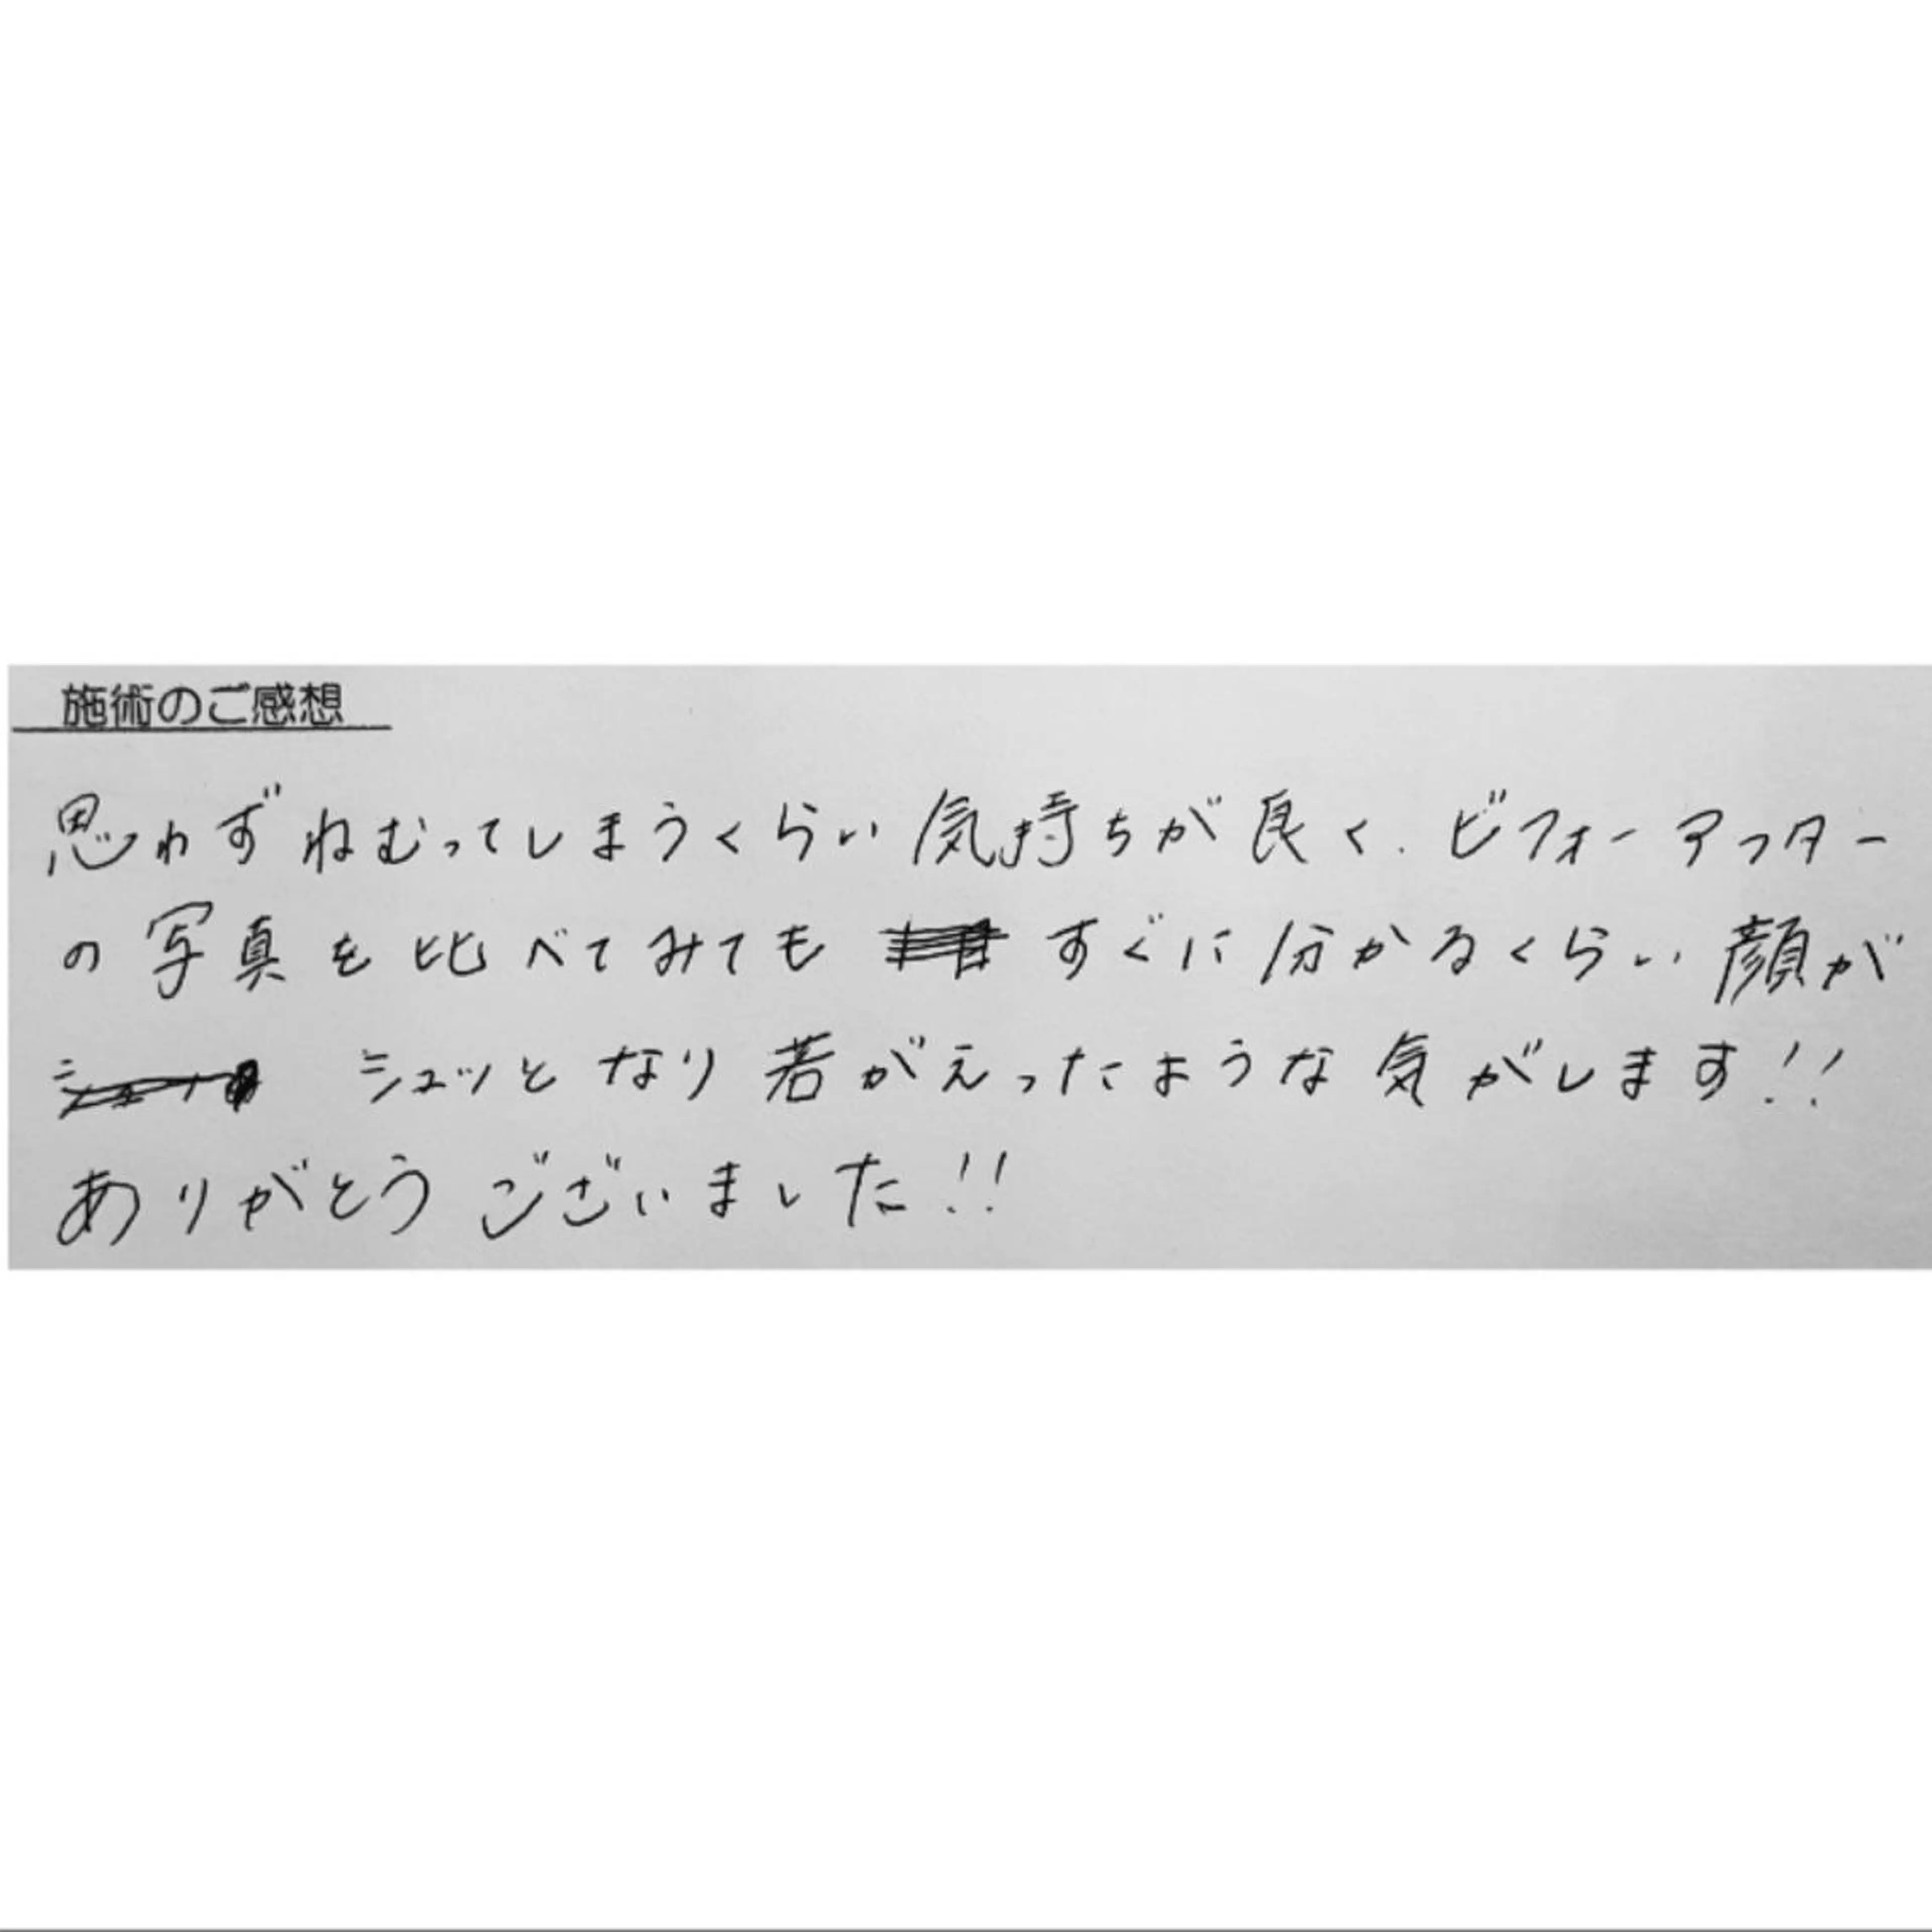 施術のご感想
思わずねむってしまうくらい気持ちが良く、ビフォーアフター
の写真を比べてみても すぐに分かるくらい顔が
シュッとなり若がえったような気がします!!
ありがとうございました!!